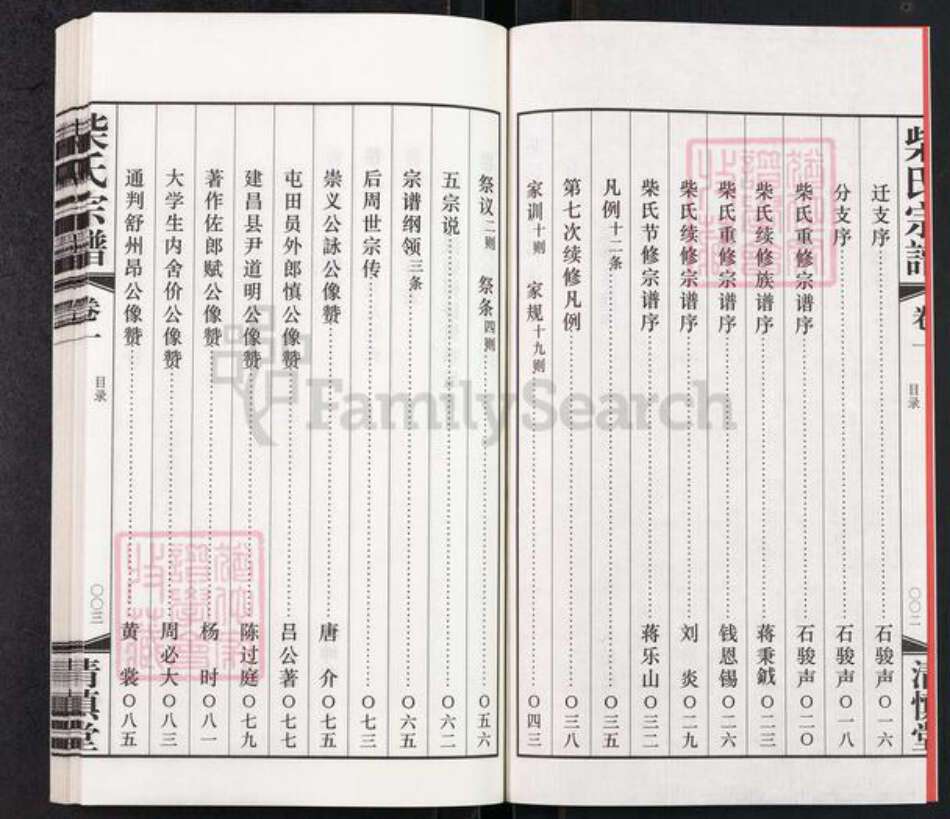 柴氏宗谱
卷一
目录
〇〇二
清慎堂
迁支序 石骏声 〇一六
分支序 石骏声 〇一八
柴氏重修宗谱序 石骏声 〇二〇
柴氏续修族谱序 蒋秉鉞 〇二三
柴氏重修宗谱序 钱恩锡 〇二六
柴氏续修宗谱序 刘炎 〇二九
柴氏节修宗谱序 蒋乐山 〇三二
凡例十二条 〇三五
第七次续修凡例 〇三八
家训十则 家规十九则 〇四三
祭议二则 祭条四则 〇五六
五宗说 〇六二
宗谱纲领三条 〇六五
后周世宗传 〇七三
崇义公詠公像赞 唐介 〇七五
屯田员外郎慎公像赞 吕公著 〇七七
建昌县尹道明公像赞 陈过庭 〇七九
著作佐郎赋公像赞 杨时 〇八一
大学生内舍价公像赞 周必大 〇八三
通判舒州昂公像赞 黄裳 〇八五
柴氏宗谱
卷一
目录
〇〇三
清慎堂
FamilySearch